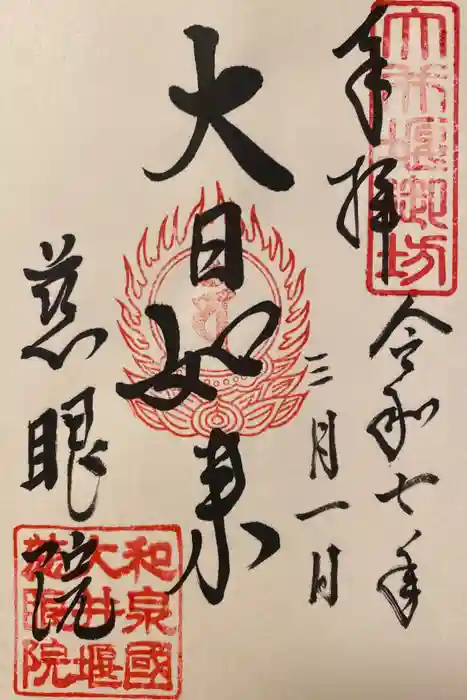 奉拝
大井堰御坊
令和七年
三月一日
大日如来
慈眼院
和泉國
大井堰
慈眼院